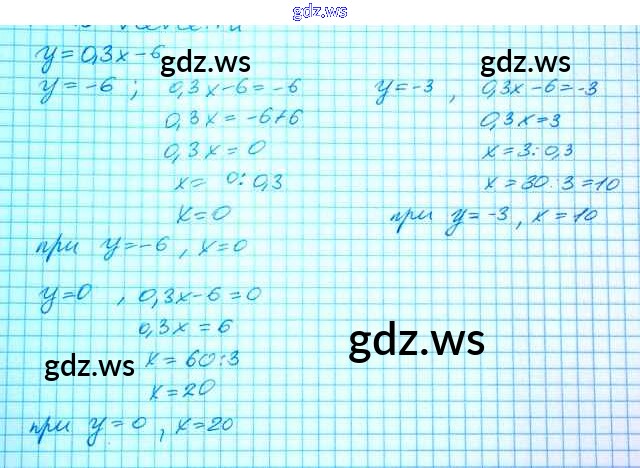 gdz.ws
y = 0,3x - 6
gdz.ws
gdz.ws
y = -6 ; 0,3x - 6 = -6
0,3x = -6+6
0,3x = 0
x = 0 : 0,3
x = 0
при y = -6 , x = 0
y = -3 , 0,3x - 6 = -3
0,3x = 3
x = 3 : 0,3
x = 30 : 3 = 10
при y = -3 , x = 10
y = 0 , 0,3x - 6 = 0
0,3x = 6
x = 60 : 3
x = 20
при y = 0 , x = 20
gdz.ws
gdz.ws